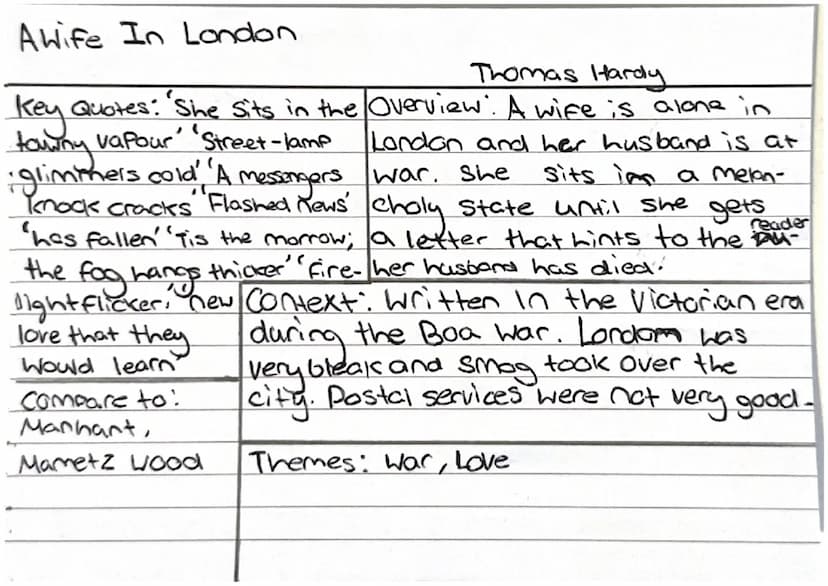 A Wife In London
Thomas Hardy
Key Quotes: 'She sits in the
tawny vapour' 'Street-lamp
glimmers cold' 'A messengers
knock cracks' 'Flashed News'
'has fallen' 'Tis the morrow;
the fog hangs thicker' 'fire-
light flicker' 'new
love that they
would learn'
Compare to:
Manhant,
Mametz Wood
Overview: A wife is alone in
London and her husband is at
war. She sits in a melan-
choly state until she gets
a letter that hints to the reader
her husband has died.
Context: Written in the Victorian era
during the Boa War. London was
very bleak and smog took over the
city. Postal services were not very good.
Themes: War, Love